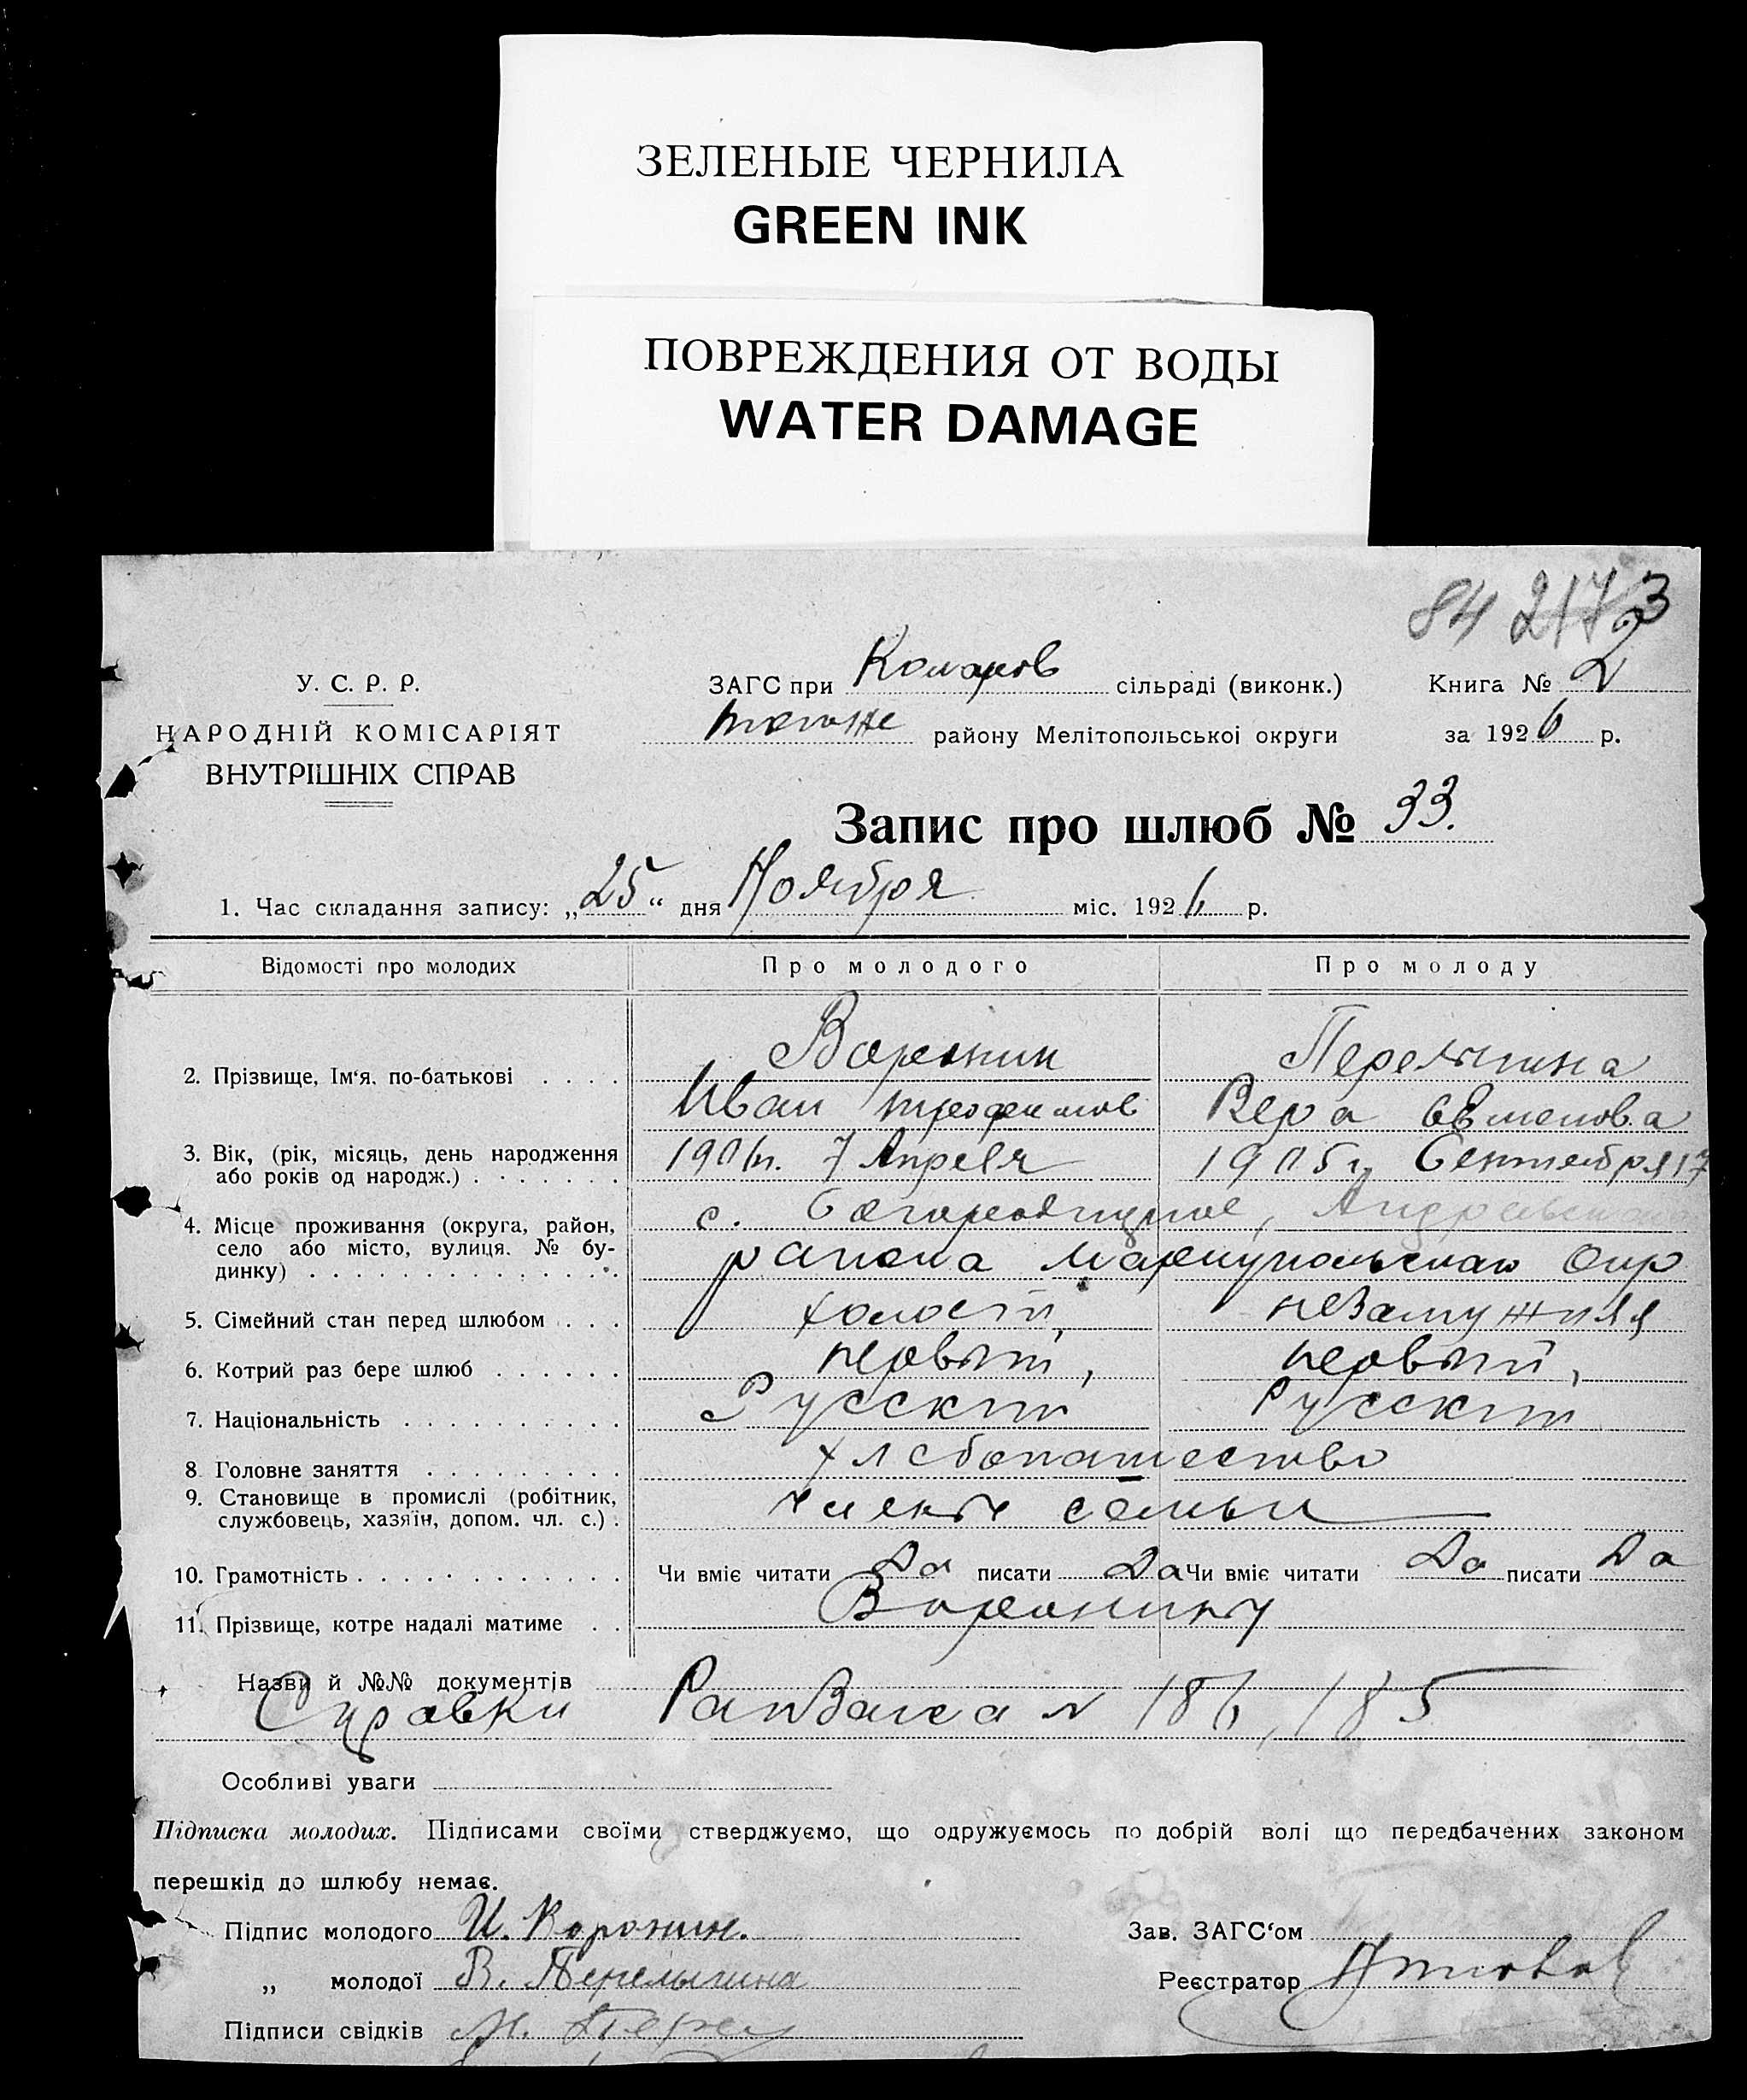 ЗЕЛЕНЫЕ ЧЕРНИЛА
GREEN INK
ПОВРЕЖДЕНИЯ ОТ ВОДЫ
WATER DAMAGE
84 217 3
У. С. Р. Р.
НАРОДНІЙ КОМІСАРІЯТ
ВНУТРІШНІХ СПРАВ
ЗАГС при Комаров сільраді (виконк.)
району Мелітопольської округи
Книга № 2
за 1926 р.
Запис про шлюб № 33.
1. Час складання запису: „25“ дня Ноября міс. 1926 р.
Відомості про молодих Про молодого Про молоду
2. Прізвище, Ім‘я, по-батькові . . . . Воронин Перелыгина
Иван Трофимов Вера
3. Вік, (рік, місяць, день народження або років од народж.) . . . . . . . 7 Апреля 1905 г. Сентября 17
4. Місце проживання (округа, район, село або місто, вулиця. № будинку) . . . . . . . . . . . . . . с. Богородицкое,
района Мариупольская Окр
5. Сімейний стан перед шлюбом . . . холост, незамужняя
6. Котрий раз бере шлюб . . . . . . первый, первый,
7. Національність . . . . . . . . . . Русский Русский
8. Головне заняття . . . . . . . . . хлебопашество
9. Становище в промислі (робітник, службовець, хазяїн, допом. чл. с.) . члены семьи
10. Грамотність . . . . . . . . . . . . Чи вміє читати Да писати Да Чи вміє читати Да писати Да
11. Прізвище, котре надалі матиме . . Воронины
Назви й №№ документів
Справки 186, 185
Особливі уваги
Підписка молодих. Підписами своїми стверджуємо, що одружуємось по добрій волі що передбачених законом
перешкід до шлюбу немає.
Підпис молодого И. Воронин.
„ молодої В. Перелыгина
Підписи свідків
Зав. ЗАГС‘ом
Реєстратор